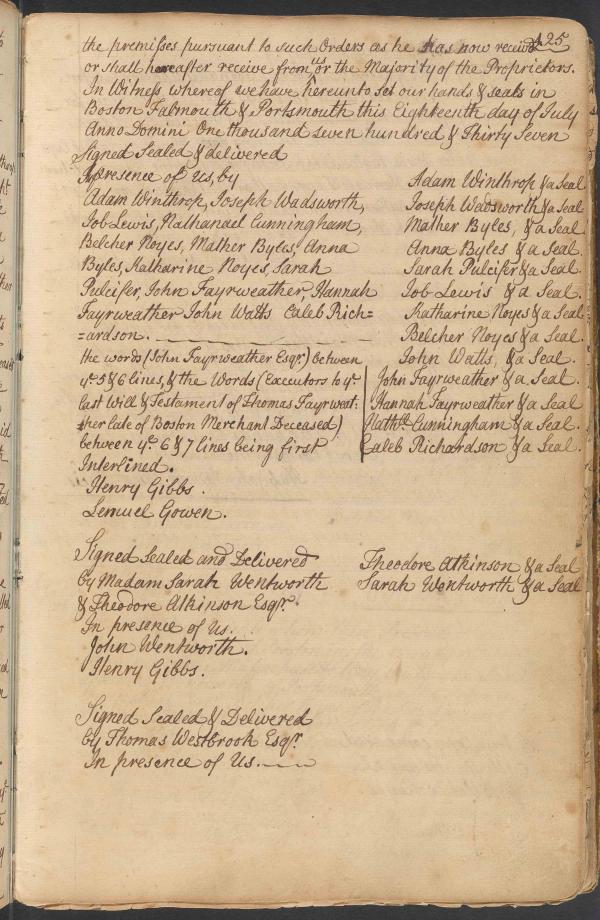 125
the premisses pursuant to such Orders as he has now receivd
or shall hereafter receive from us or the Majority of the Proprietors.
In Witness whereof we have hereunto set our hands & seals in
Boston Falmouth & Portsmouth this Eighteenth day of July
Anno Domini One thousand seven hundred & Thirty Seven
Signed Sealed & delivered
In presence of Us, by
Adam Winthrop, Joseph Wadsworth,
Job Lewis, Nathanael Cunningham,
Belcher Noyes, Mather Byles, Anna
Byles, Katharine Noyes, Sarah
Pulcifer, John Fayrweather, Hannah
Fayrweather John Watts Caleb Rich=
=ardson.
the words (John Fayrweather Esqr.) between
ye. 5 & 6 lines, & the Words (Executors to ye.
last Will & Testament of Thomas Fayrweat:
:her late of Boston Merchant Deceased)
between ye. 6 & 7 lines being first
Interlined.
Henry Gibbs.
Lemuel Gowen.
Adam Winthrop & a Seal
Joseph Wadsworth & a Seal
Mather Byles, & a Seal
Anna Byles & a Seal.
Sarah Pulcifer & a Seal.
Job Lewis & a Seal.
Katharine Noyes & a Seal
Belcher Noyes & a Seal.
John Watts, & a Seal.
John Fayrweather & a Seal.
Hannah Fayrweather & a Seal
Nathll. Cunningham & a Seal.
Caleb Richardson & a Seal.
Signed Sealed and Delivered
by Madam Sarah Wentworth
& Theodore Atkinson Esqr.
In presence of Us.
John Wentworth.
Henry Gibbs.
Theodore Atkinson & a Seal
Sarah Wentworth & a Seal
Signed Sealed & Delivered
by Thomas Westbrook Esqr.
In presence of Us.